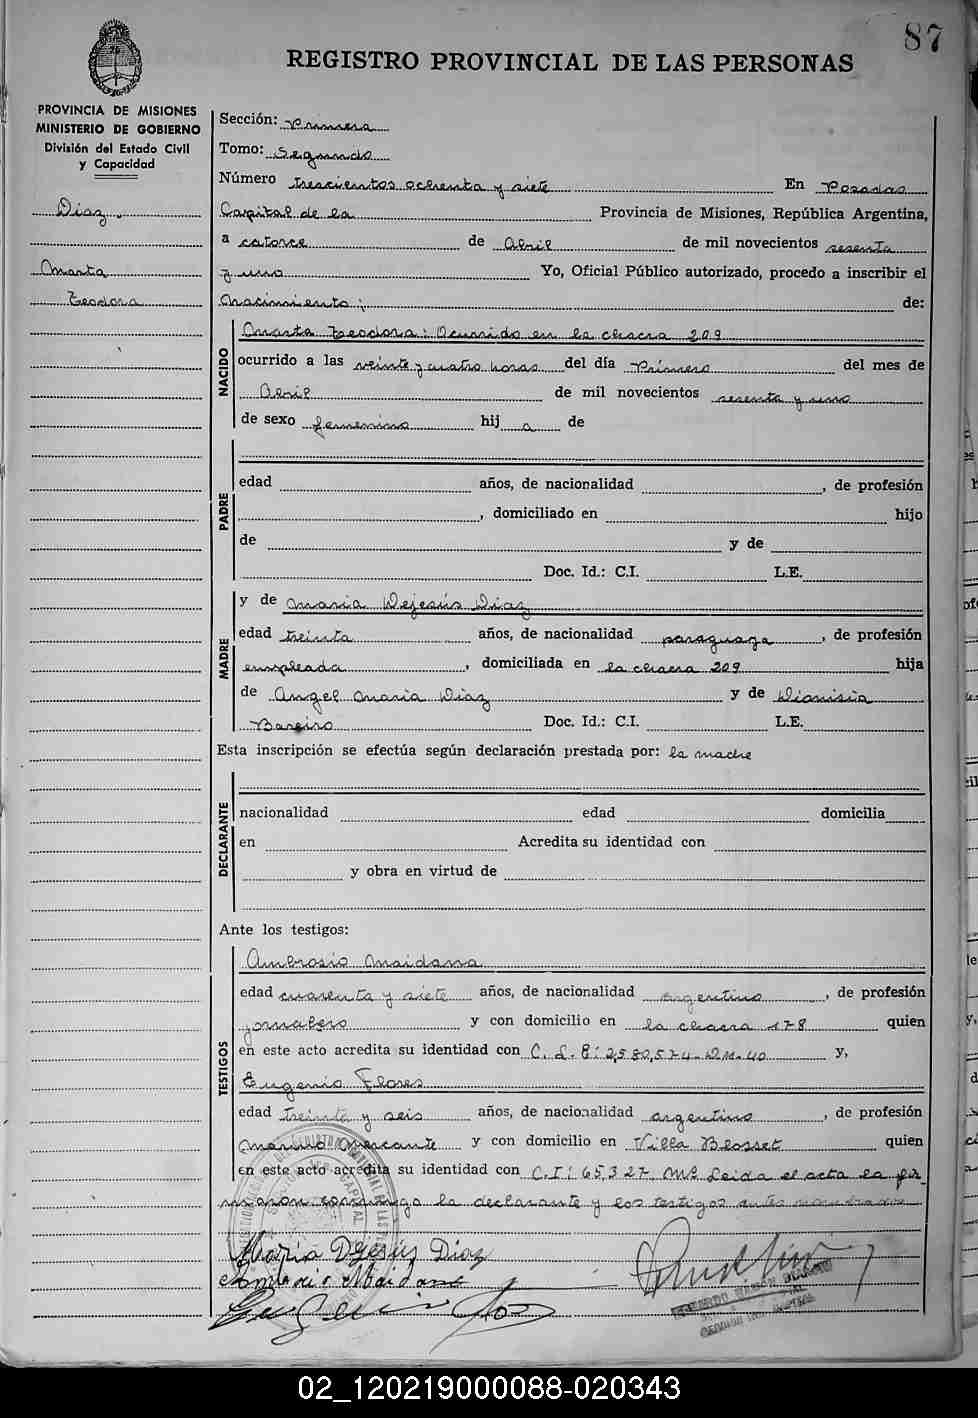 87
REGISTRO PROVINCIAL DE LAS PERSONAS
PROVINCIA DE MISIONES
MINISTERIO DE GOBIERNO
División del Estado Civil
y Capacidad
Diaz.
Marta
Teodora
Sección: Primera
Tomo: Segundo
Número trescientos ochenta y siete En Posadas
Capital de la Provincia de Misiones, República Argentina,
a catorce de Abril de mil novecientos sesenta
y uno Yo, Oficial Público autorizado, procedo a inscribir el
Nacimiento; de:
NACIDO
Marta Teodora: Ocurrido en la chacra 209
ocurrido a las veinte y cuatro horas del día Primero del mes de
Abril de mil novecientos sesenta y uno
de sexo femenino hij a de
PADRE
edad años, de nacionalidad , de profesión
, domiciliado en hijo
de y de
Doc. Id.: C.I. L.E.
MADRE
y de Maria Dejesús Diaz
edad treinta años, de nacionalidad paraguaya , de profesión
empleada , domiciliada en la chacra 209 hija
de Angel Maria Diaz y de Dionisia
Bareiro Doc. Id.: C.I. L.E.
Esta inscripción se efectúa según declaración prestada por: la madre
DECLARANTE
nacionalidad edad domicilia
en Acredita su identidad con
y obra en virtud de
Ante los testigos:
TESTIGOS
Ambrosio Maidana
edad cuarenta y siete años, de nacionalidad argentino , de profesión
jornalero y con domicilio en la chacra 178 quien
en este acto acredita su identidad con C. L. E: 2,580,574-D.M.40 y,
Eugenio Flores
edad treinta y seis años, de nacionalidad argentino , de profesión
marino mercante y con domicilio en Villa Blosset quien
en este acto acredita su identidad con C.I: 65,327. Ms. Leida el acta la fir
maron conmigo la declarante y los testigos antes nombrados
Maria Dejesús Diaz
Ambrosio Maidana
02_120219000088-020343